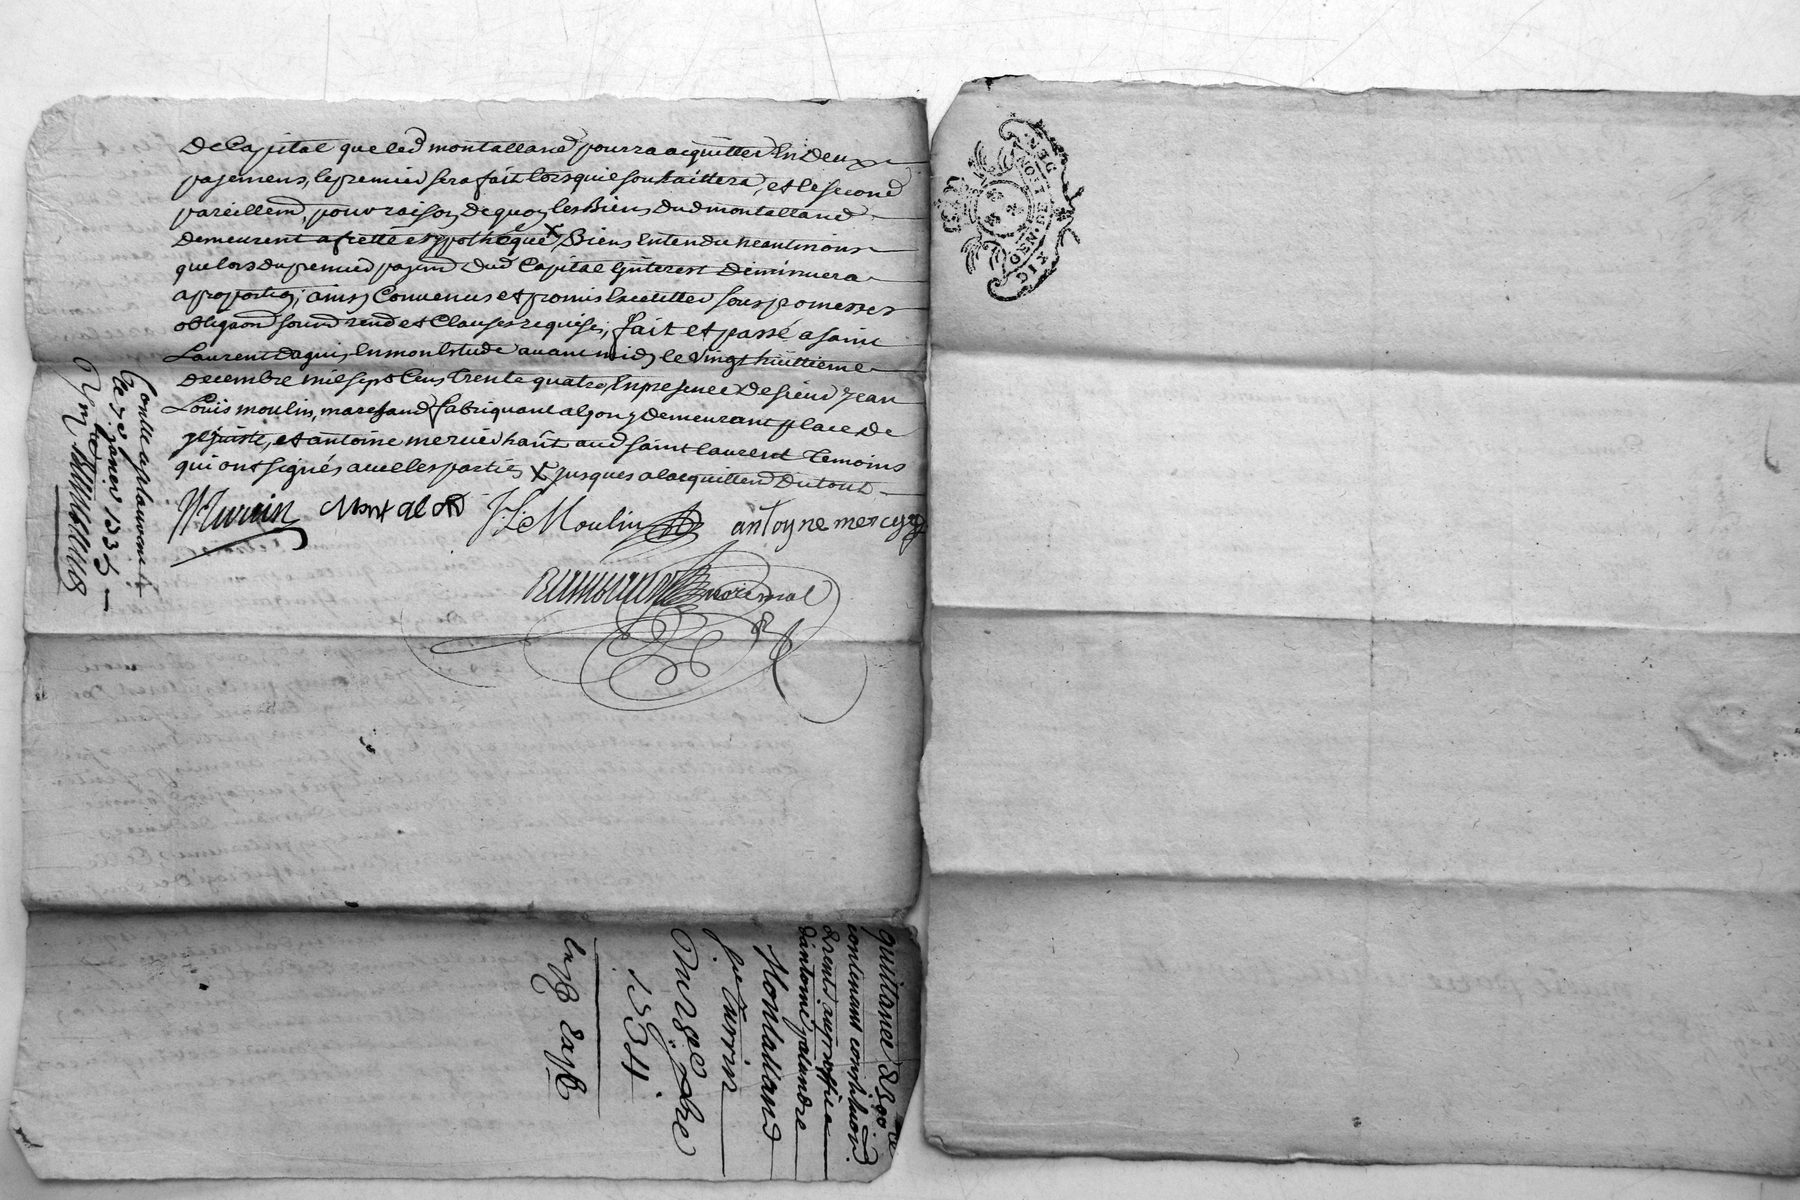 De Capital que led montalland pourra acquitter En Deux
payemens, le premier sera fait lorsquil souhaittera, et le second
pareillemt, pour raison de quoy les Biens dud montalland
demeurent affetté et ypothequé X, Biens Entendu neantmoins
que lors du premier payemt dud Capital Linterest Diminuera
a proportion; ainsy Convenus et promis Executter sous promesses
obligaon soumd rend et Clauses requises, fait et passé a saint
Laurent dagny En mon Estude avant midy le vingt huittieme
decembre mil sept Cens trente quatre, En presence De sieur Jean
Louis moulin, marchand fabriquant a lyon y demeurant place de
et antoine mercier dud saint laurent Temoins
qui ont signés avec les parties X jusques a lacquittemt Du tout
Turrin Montaland J L Moulin antoyne mercyer
notre royal
Conllé a
ce janvier 1735
quittance de 500
contenant constituon
de rente au proffit
d'antoine
Montalland
Sr Turrin
28e Xbre
1734
Exp Exp